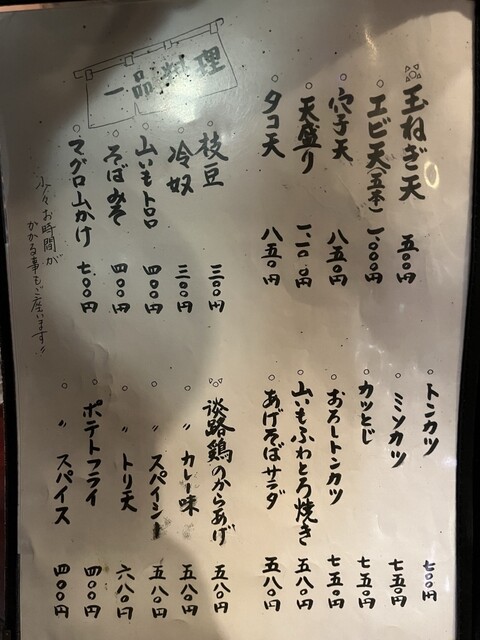 一品料理
玉ねぎ天 五〇〇円
エビ天(五本) 一、〇〇〇円
穴子天 八五〇円
天盛り 一、二〇〇円
タコ天 八五〇円
枝豆 三〇〇円
冷奴 三〇〇円
山いもトロロ 四〇〇円
そばみそ 四〇〇円
マグロ山かけ 七〇〇円
少々お時間が
かかる事もございます!!
トンカツ 七〇〇円
ミソカツ 七五〇円
カツとじ 七五〇円
おろしトンカツ 七五〇円
山いもふわとろ焼き 五八〇円
あげそばサラダ 五八〇円
淡路鶏のからあげ 五八〇円
〃 カレー味 五八〇円
〃 スパイシー 五八〇円
〃 トリ天 六八〇円
ポテトフライ 四〇〇円
〃 スパイス 四〇〇円